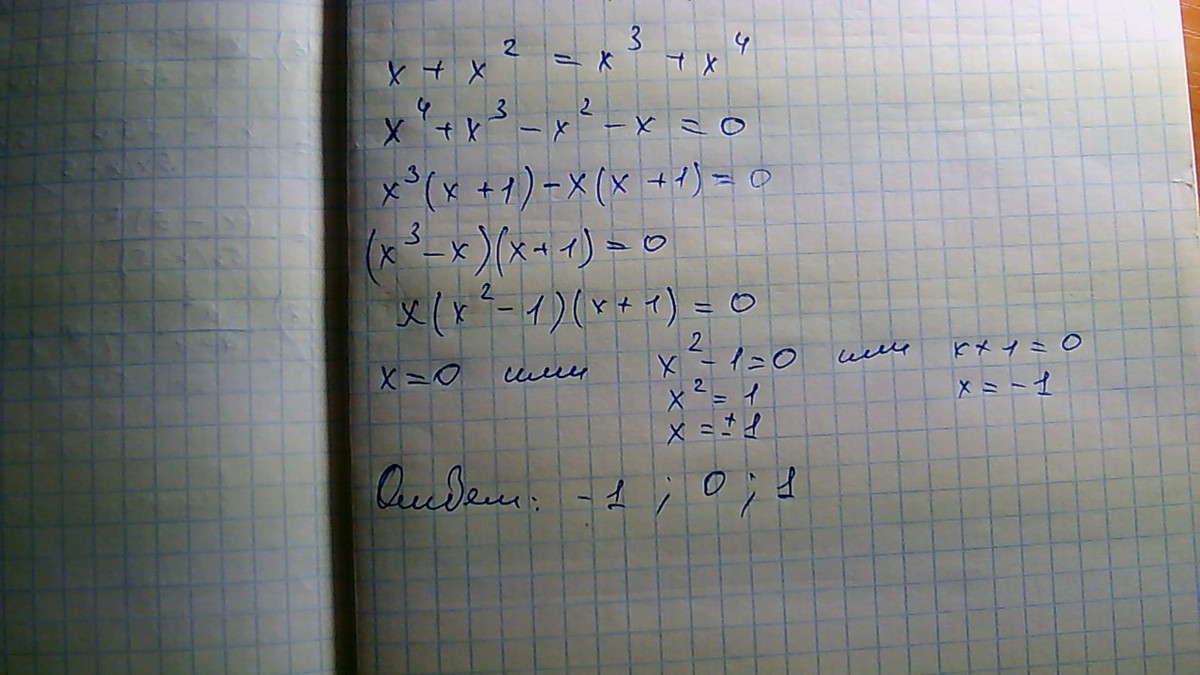 x + x² = x³ + x⁴
x⁴ + x³ - x² - x = 0
x³(x + 1) - x(x + 1) = 0
(x³ - x)(x + 1) = 0
x(x² - 1)(x + 1) = 0
x = 0 или x² - 1 = 0 или x + 1 = 0
x² = 1 x = -1
x = ± 1
Ответ: -1 ; 0 ; 1